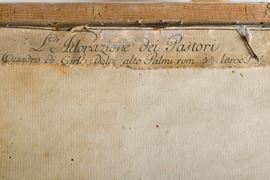 L'Adorazione dei Pastori
Quadro di Carlo Dolci, alto Palmi rom. 2½ largo